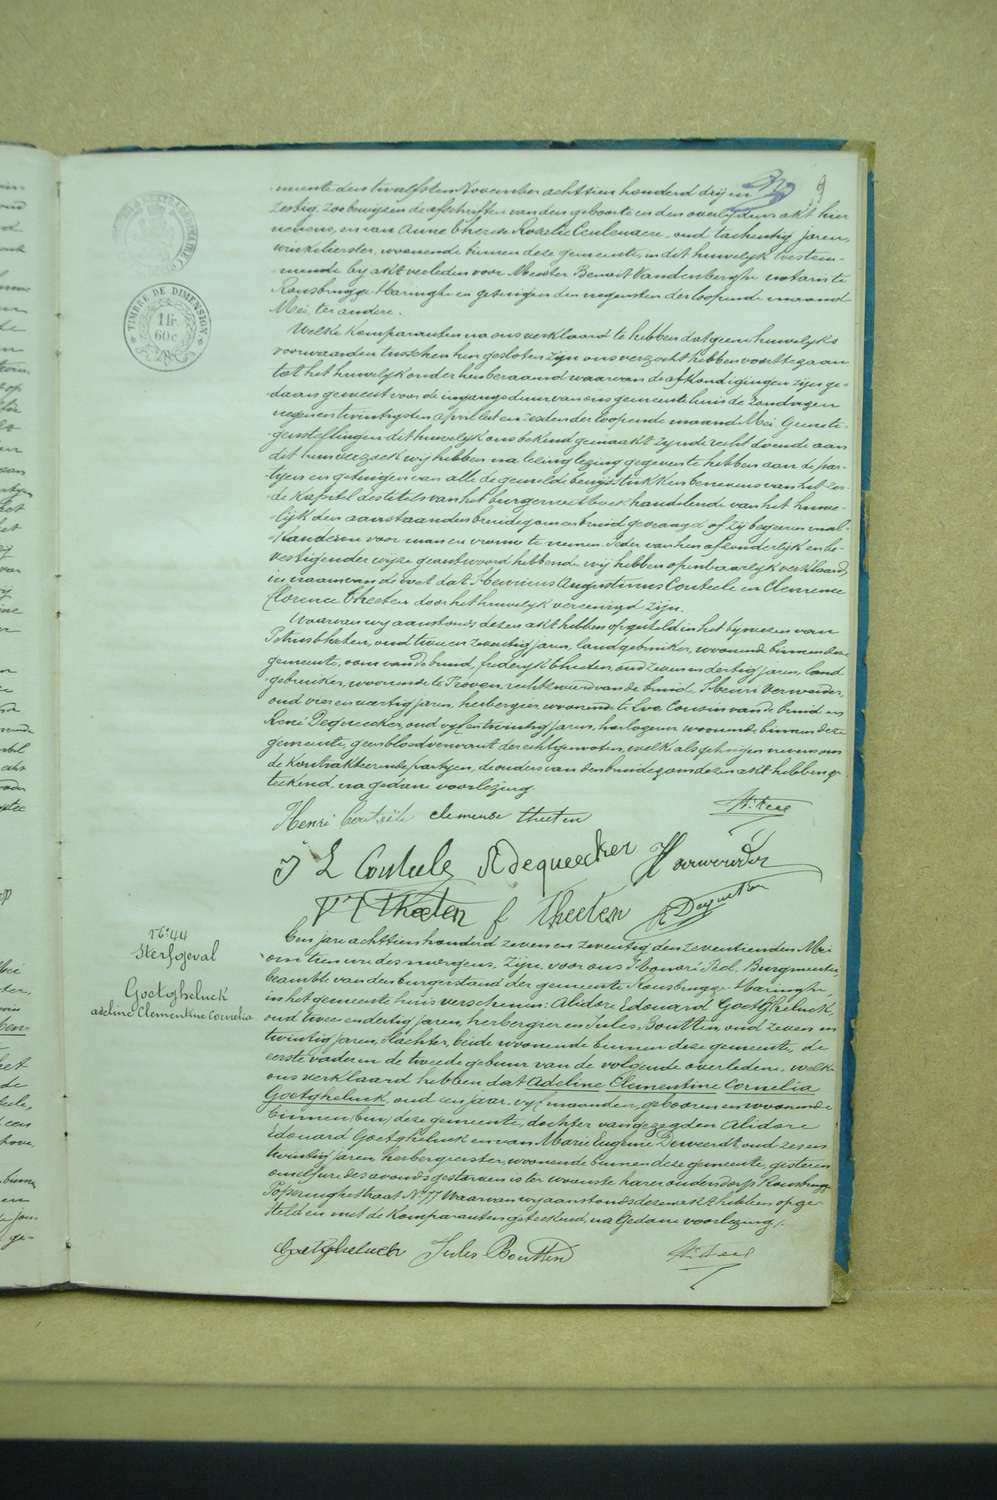 meente den twaalfsten November achttien honderd drij en
zestig, zoo bewijzen de afschriften van den geboorte en den overlijdens akt hier
nevens, en van Anne Therese Rosalie Ceulenaere, oud tachentig jaren,
winkelierster, woonende binnen deze gemeente, in dit huwelijk toestem-
mende bij akt verleden voor Meester Benoit Vandenberghe notaris te
Rousbrugge-Haringhe en getuigen den negensten der loopende maand
Mei, ter andere.
Welke komparanten na ons verklaard te hebben dat geene huwelijks
voorwaarden tusschen hen gesloten zijn ons verzocht hebben voort te gaan
tot het huwelijk onder hen beraamd waarvan de afkondigingen zijn ge-
daan geweest voor de ingangsdeur van ons gemeente huis de zondagen
negen en twintigsten april lest en zesden der loopende maand Mei. Geene te-
genstellingen dit huwelijk ons bekend gemaakt zijnde, recht doende aan
dit hun verzoek, wij hebben na lezing gegeven te hebben aan de par-
tijen en getuigen van alle de gemelde bewijsstukken benevens van het zes-
de kapitel des titels van het burger wetboek handelende van het huwe-
lijk den aanstaanden bruidegom en bruid gevraagd of zij begeeren mal-
kanderen voor man en vrouw te nemen. Ieder van hen afzonderlijk en be-
vestigender wijze geantwoord hebbende wij hebben openbaarlijk verklaard,
in naam van de wet dat Henricus Augustinus Couteele en Clemence
Florence Theeten door het huwelijk vereenigd zijn.
Waarvan wij aanstonds dezen akt hebben opgesteld in het bijwezen van
Petrus Theeten, oud twee en zeventig jaren, landgebruiker, woonende binnen deze
gemeente, oom van de bruid, frederyk Theeten, oud zeven en dertig jaren, land
gebruiker, woonende te Proven, rechtzweer van de bruid, Henri Verwaerder,
oud vier en vartig jaren, herbergier, woonende te Loo, Cousin van de bruid en
René Dequeecker, oud vijf en twintig jaren, horlogier, woonende binnen deze
gemeente, geen bloedverwant der echtgenoten, welke als getuigen nevens ons
de kontrakteerende partyen, de ouders van den bruidegom dezen akt hebben ge-
teekend, na gedane voorlezing.
Henri Couteele clemence theeten
J L Couteele R dequeecker H
P T Theeten f Theeten R Dequeecker
N°. 44
Sterfgeval
Goetgheluck
adeline Clementine Cornelia
Een jare achttien honderd zeven en zeventig den zeventienden Mei
om tien ure des morgens, zijn voor ons Honoré Rod. Burgmeester,
beambte van den burgerstand der gemeente Rousbrugge-Haringhe,
in het gemeente huis verschenen: Alidore Edouard Goetgheluck,
oud twee en dertig jaren, herbergier en Jules Bouttin, oud zeven en
twintig jaren, slachter, beide woonende binnen deze gemeente, de
eerste vader en de tweede gebuur van de volgende overledene, welke
ons verklaard hebben dat Adeline Clementine Cornelia
Goetgheluck, oud een jaar, vijf maanden, geboren en woonende
binnen deze gemeente, dochter van gezegden Alidore
Edouard Goetgheluck en van Marie Eugenie Deweerdt, oud zes en
twintig jaren, herbergierster, woonende binnen deze gemeente, gisteren
om elf ure des avonds gestorven is ter woonste harer ouders dorp Rousbrugge
Poperinghestraat N° 77. Waarvan wij aanstonds dezen akt hebben opge-
steld en met de komparanten geteekend, na gedane voorlezing.
Goetgheluck Jules Bouttin
TIMBRE DE DIMENSION
1 fr.
60 c.
9